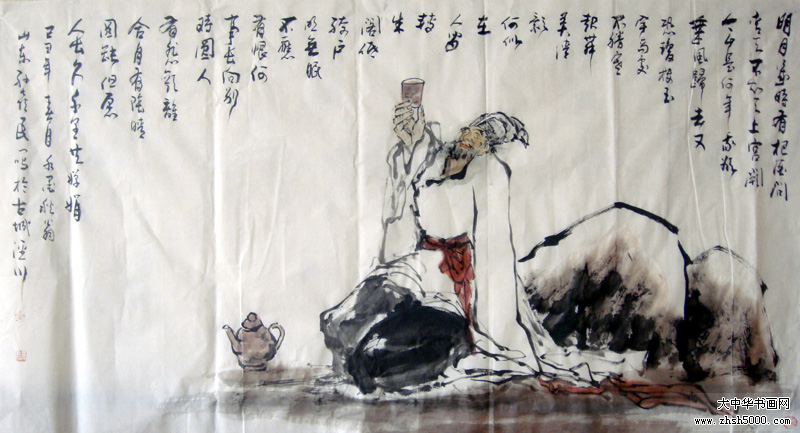 明月幾時有把酒問
青天不知天上宮闕
今夕是何年我欲
乘風歸去又
恐瓊樓玉
宇高處
不勝寒
起舞
弄清
影
何似
在
人間
轉
朱
閣低
綺戶
照無眠
不應
有恨何
事長向別
時圓人
有悲歡離
合月有陰晴
圓缺但願
人長久千里共嬋娟
己丑年春月
山东民一鸣於古城淄川
大中华书画网
www.zhsh5000.com